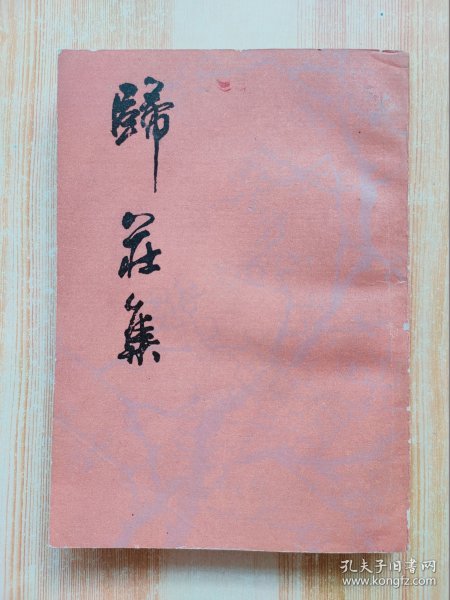 歸莊集
孔夫子旧书网
www.kongfz.com